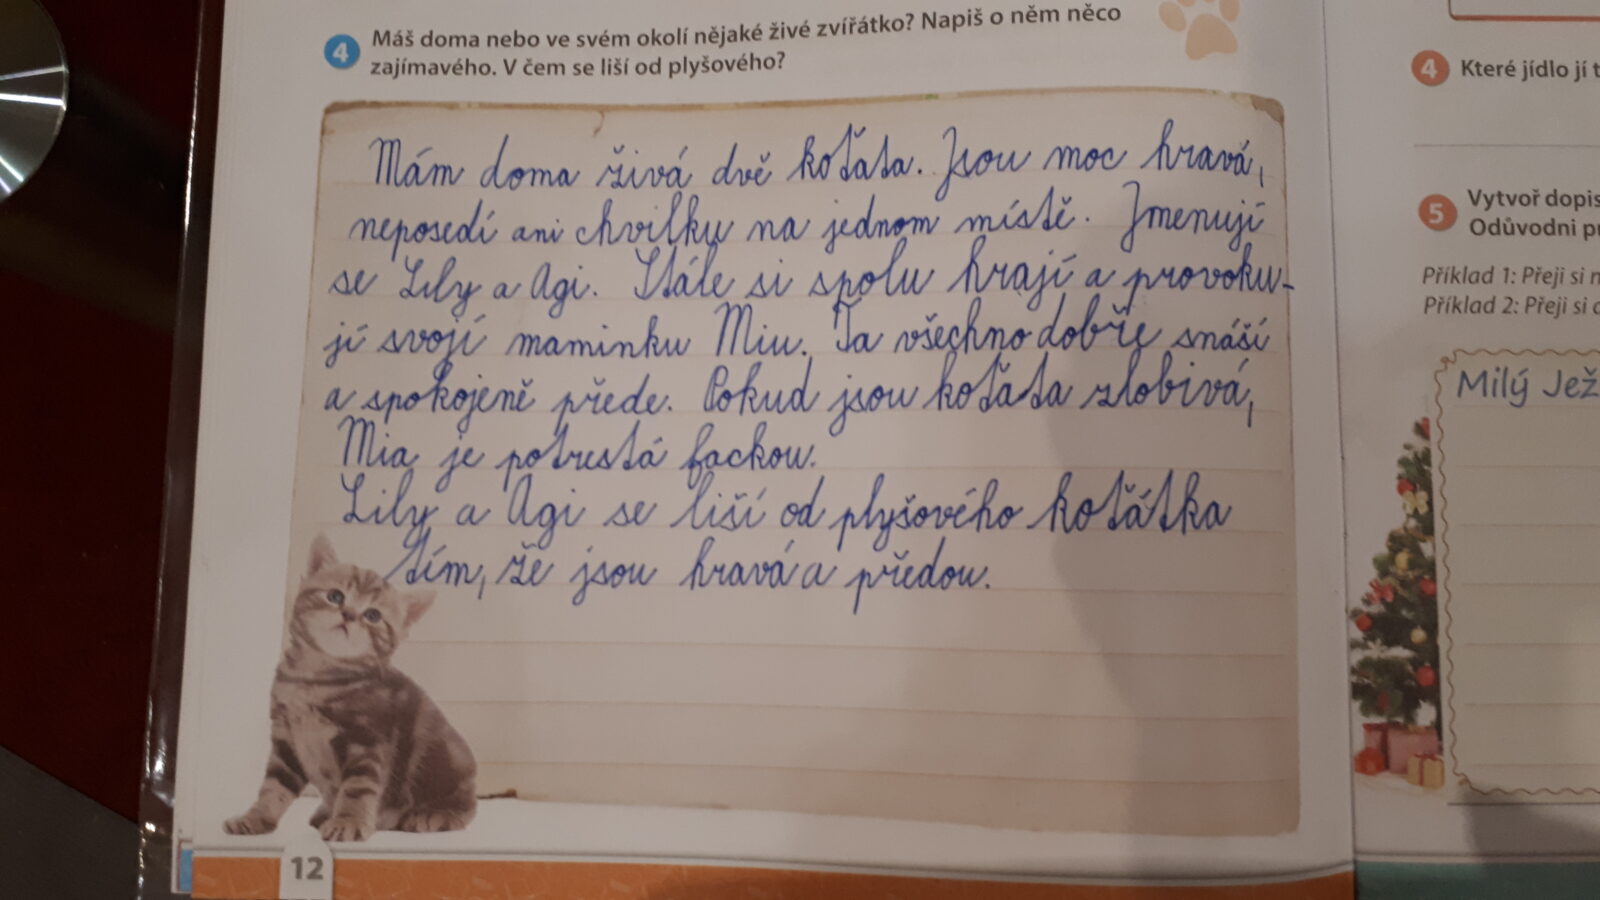 4 Máš doma nebo ve svém okolí nějaké živé zvířátko? Napiš o něm něco
zajímavého. V čem se liší od plyšového?
Mám doma živá dvě koťata. Jsou moc hravá,
neposedí ani chvilku na jednom místě. Jmenují
se Lily a Agi. Stále si spolu hrají a provoku-
jí svojí maminku Miu. Ta všechno dobře snáší
a spokojeně přede. Pokud jsou koťata zlobivá,
Mia je potrestá fackou.
Lily a Agi se liší od plyšového koťátka
tím, že jsou hravá a předou.
12
4 Které jídlo jí
5 Vytvoř dopis
Odůvodni
Příklad 1: Přeji si
Příklad 2: Přeji si
Milý Jež